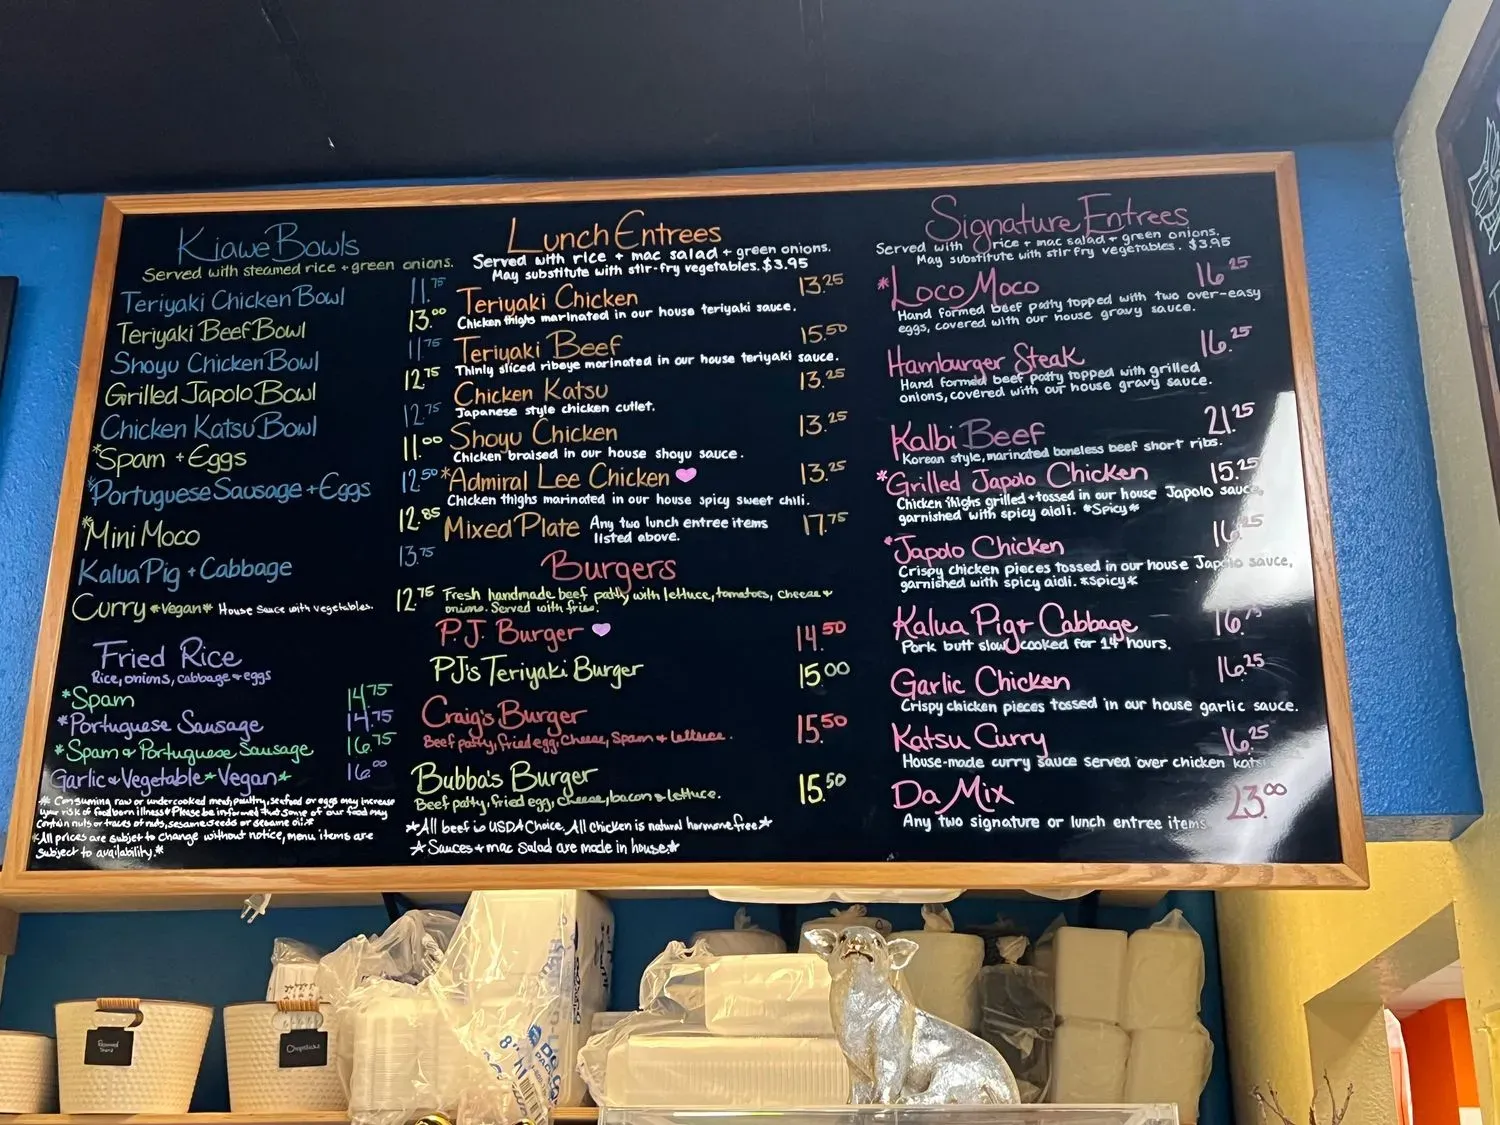 Kiawe Bowls
Served with steamed rice + green onions.
Teriyaki Chicken Bowl 11.75
Teriyaki Beef Bowl 13.00
Shoyu Chicken Bowl 11.75
Grilled Japolo Bowl 12.75
Chicken Katsu Bowl 12.75
*Spam + Eggs 11.00
*Portuguese Sausage + Eggs 12.50
*Mini Moco 12.85
Kalua Pig + Cabbage 13.75
Curry *Vegan* House Sauce with vegetables. 12.75
Fried Rice
Rice, onions, cabbage + eggs
*Spam 14.75
*Portuguese Sausage 14.75
*Spam & Portuguese Sausage 16.75
Garlic & Vegetable *Vegan* 16.00
* Consuming raw or undercooked meat, poultry, seafood or eggs may increase
your risk of foodborn illness * Please be informed that some of our food may
contain nuts or traces of nuts, sesame seeds or sesame oil *
*All prices are subject to change without notice, menu items are
subject to availability.*
Lunch Entrees
Served with rice + mac salad + green onions.
May substitute with stir-fry vegetables. $3.95
Teriyaki Chicken 13.25
Chicken thighs marinated in our house teriyaki sauce.
Teriyaki Beef 15.50
Thinly sliced ribeye marinated in our house teriyaki sauce.
Chicken Katsu 13.25
Japanese style chicken cutlet.
Shoyu Chicken 13.25
Chicken braised in our house shoyu sauce.
*Admiral Lee Chicken 13.25
Chicken thighs marinated in our house spicy sweet chili.
Mixed Plate Any two lunch entree items 17.75
listed above.
Burgers
Fresh handmade beef patty, with lettuce, tomatoes, cheese +
onions. Served with fries.
P.J. Burger 14.50
PJ's Teriyaki Burger 15.00
Craig's Burger 15.50
Beef patty, fried egg, cheese, Spam + lettuce.
Bubba's Burger 15.50
Beef patty, fried egg, cheese, bacon & lettuce.
*All beef is USDA Choice. All chicken is natural hormone free*
*Sauces + mac Salad are made in house.*
Signature Entrees
Served with rice + mac salad + green onions.
May substitute with stir fry vegetables. $3.95
*Loco Moco 16.25
Hand formed beef patty topped with two over-easy
eggs, covered with our house gravy sauce.
Hamburger Steak 16.25
Hand formed beef patty topped with grilled
onions, covered with our house gravy sauce.
Kalbi Beef 21.25
Korean style, marinated boneless beef short ribs.
*Grilled Japolo Chicken 15.25
Chicken thighs grilled + tossed in our house Japolo sauce,
garnished with spicy aioli. *Spicy*
*Japolo Chicken 16.25
Crispy chicken pieces tossed in our house Japolo sauce,
garnished with spicy aioli. *Spicy*
Kalua Pig + Cabbage 16.75
Pork butt slow cooked for 14 hours.
Garlic Chicken 16.25
Crispy chicken pieces tossed in our house garlic sauce.
Katsu Curry 16.25
House-made curry sauce served over chicken katsu
Da Mix 23.00
Any two signature or lunch entree items
Chopsticks
8"